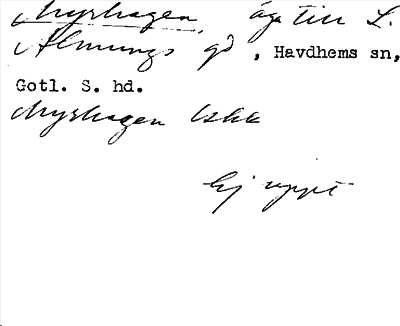 Myrhagen, äga till L.
Almungs gd, Havdhems sn,
Gotl. S. hd.
Myrhagen Lskk
Ej uppt